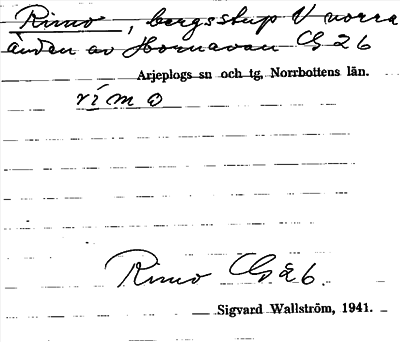 Rimo, bergsstup V norra
änden av Hornavan Gb 26
Arjeplogs sn och tg, Norrbottens län.
rímo
Rimo Gb 26.
Sigvard Wallström, 1941.